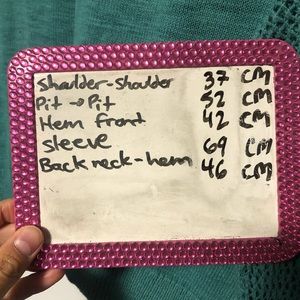 Shoulder-shoulder 37 CM
Pit → Pit 52 CM
Hem front 42 CM
Sleeve 69 CM
Back neck-hem 46 CM